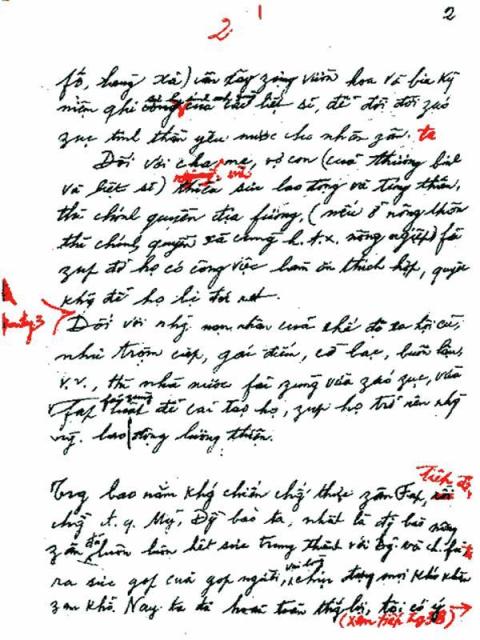 2 1 2
fố, làng xã) cần xây zựng vườn hoa và bia kỷ
niệm ghi sự hy sinh anh zũng của các liệt sĩ, để đời đời záo
zục tinh thần yêu nước cho nhân zân ta
Đối với cha mẹ, vợ con (của thương binh
và liệt sĩ) thiếu sức lao động và túng thiếu,
thì chính quyền địa fương, (nếu ở nông thôn
thì chính quyền xã cùng h.t.x. nông ngiệp) fải
zúp đỡ họ có công việc làm ăn thích hợp, quyết
khg để họ bị đói rét.
Đối với nhg nạn nhân của chế độ xã hội cũ,
như trộm cắp, gái điếm, cờ bạc, buôn lậu,
v.v., thì nhà nước fải zùng vừa záo zục, vừa
fải zùng
Fáp luật để cải tạo họ, zúp họ trở nên nhg
ng. lao động lương thiện.
Trg bao năm khg chiến chg thực zân Fáp, tiếp đó,
chg đ.q. Mỹ, Đg bào ta, nhất là đg bào nông
zân đã luôn luôn hết sức trung thành với Đg và ch.fủ
ra sức góp của góp người, vui lòng chịu đựng mọi khó khăn
zan khổ. Nay ta đã hoàn toàn thắg lợi, tôi có ý
(xem tiếp tg 3B)